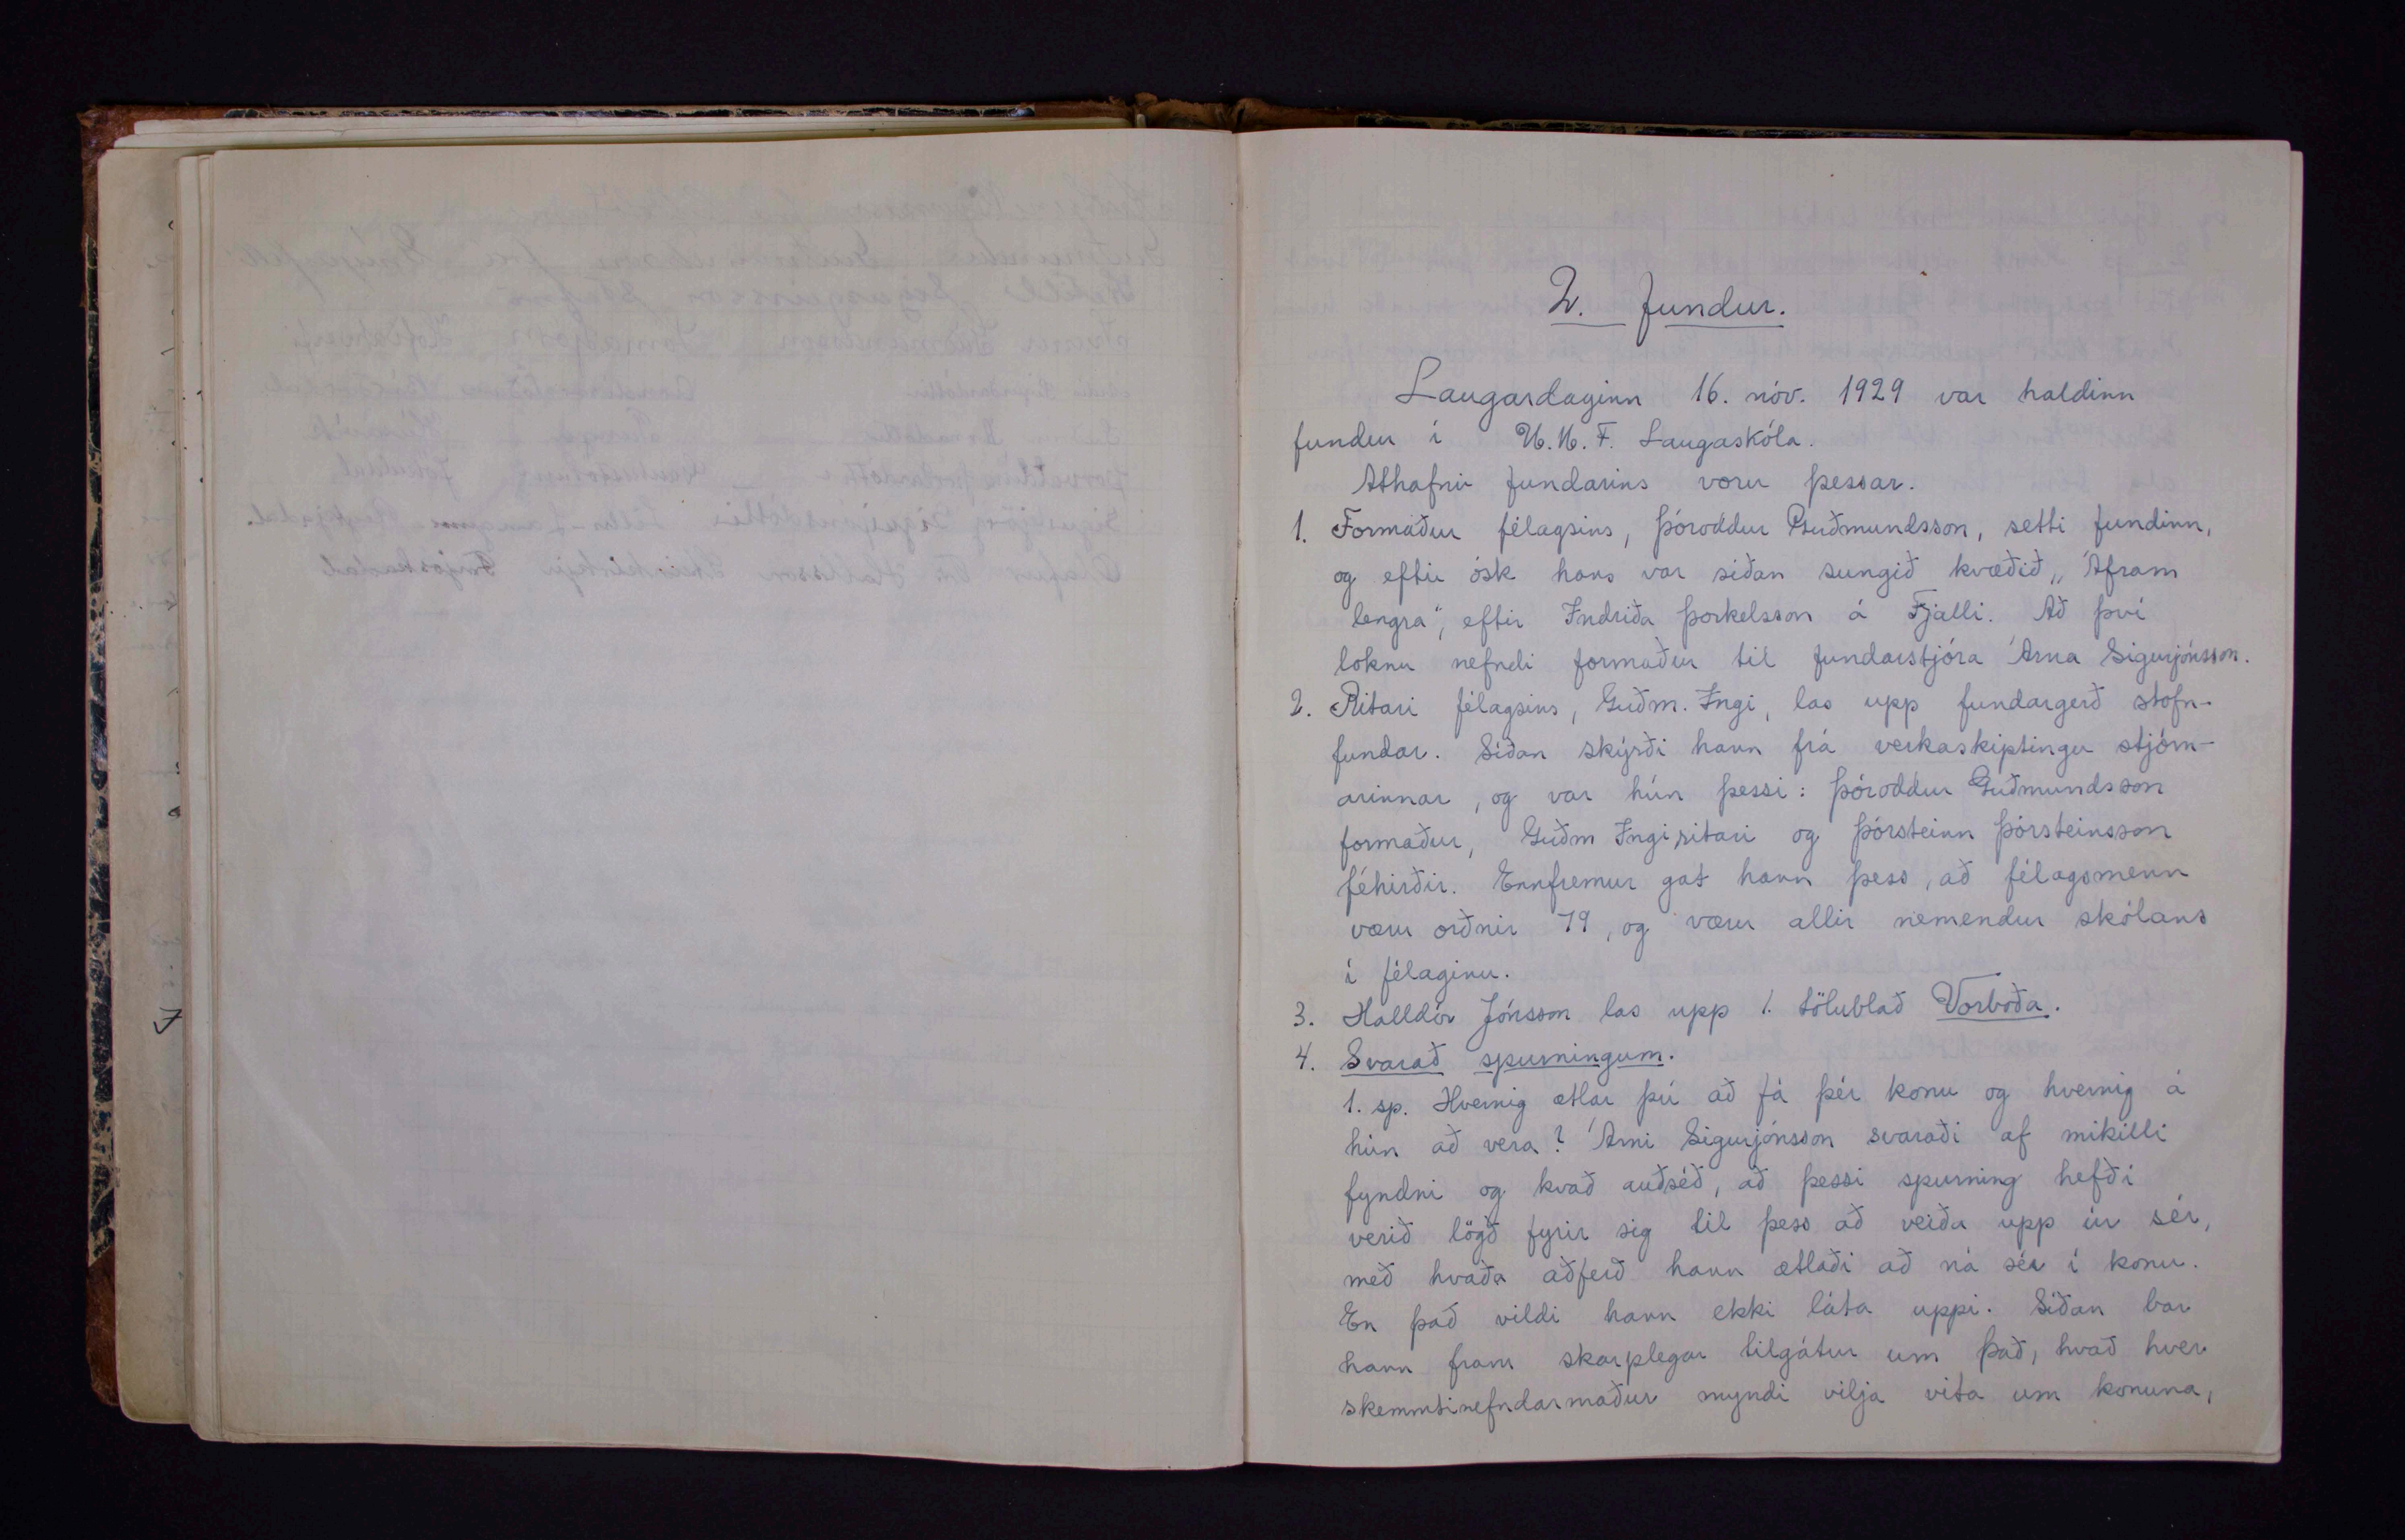 2. fundur.
Laugardaginn 16. nóv. 1929 var haldinn
fundur í U.M.F. Laugaskóla.
Athafnir fundarins voru þessar.
1. Formaður félagsins, Þóroddur Guðmundsson, setti fundinn,
og eftir ósk hans var síðan sungið kvæðið „Áfram
lengra“, eftir Indriða Þorkelsson á Fjalli. Að því
loknu nefndi formaður til fundarstjóra Árna Sigurjónsson.
2. Ritari félagsins, Guðm. Ingi, las upp fundargerð stofn-
fundar. Síðan skýrði hann frá verkaskiptingu stjórn-
arinnar, og var hún þessi: Þóroddur Guðmundsson
formaður, Guðm Ingi, ritari og Þórsteinn Þórsteinsson
féhirðir. Ennfremur gat hann þess, að félagsmenn
væru orðnir 79, og væru allir nemendur skólans
í félaginu.
3. Halldór Jónsson las upp 1. tölublað Vorboða.
4. Svarað spurningum.
1. sp. Hvernig ætlar þú að fá þér konu og hvernig á
hún að vera? Árni Sigurjónsson svaraði af mikilli
fyndni og kvað auðséð, að þessi spurning hefði
verið lögð fyrir sig til þess að veiða upp úr sér,
með hvaða aðferð hann ætlaði að ná sér í konu.
En það vildi hann ekki láta uppi. Síðan bar
hann fram skarplegar tilgátur um það, hvað hver
skemmtinefndarmaður myndi vilja vita um konuna,